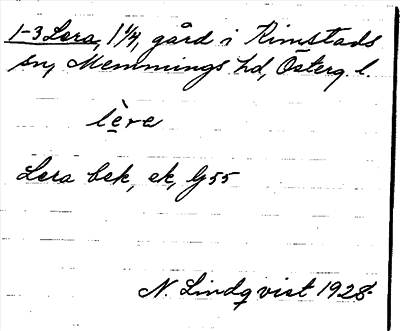 1-3 Lera, 1 1/4, gård i Kimstads
sn, Memmings hd, Österg. l.
lève
Lera bek, ek, G55
N. Lindqvist 1928